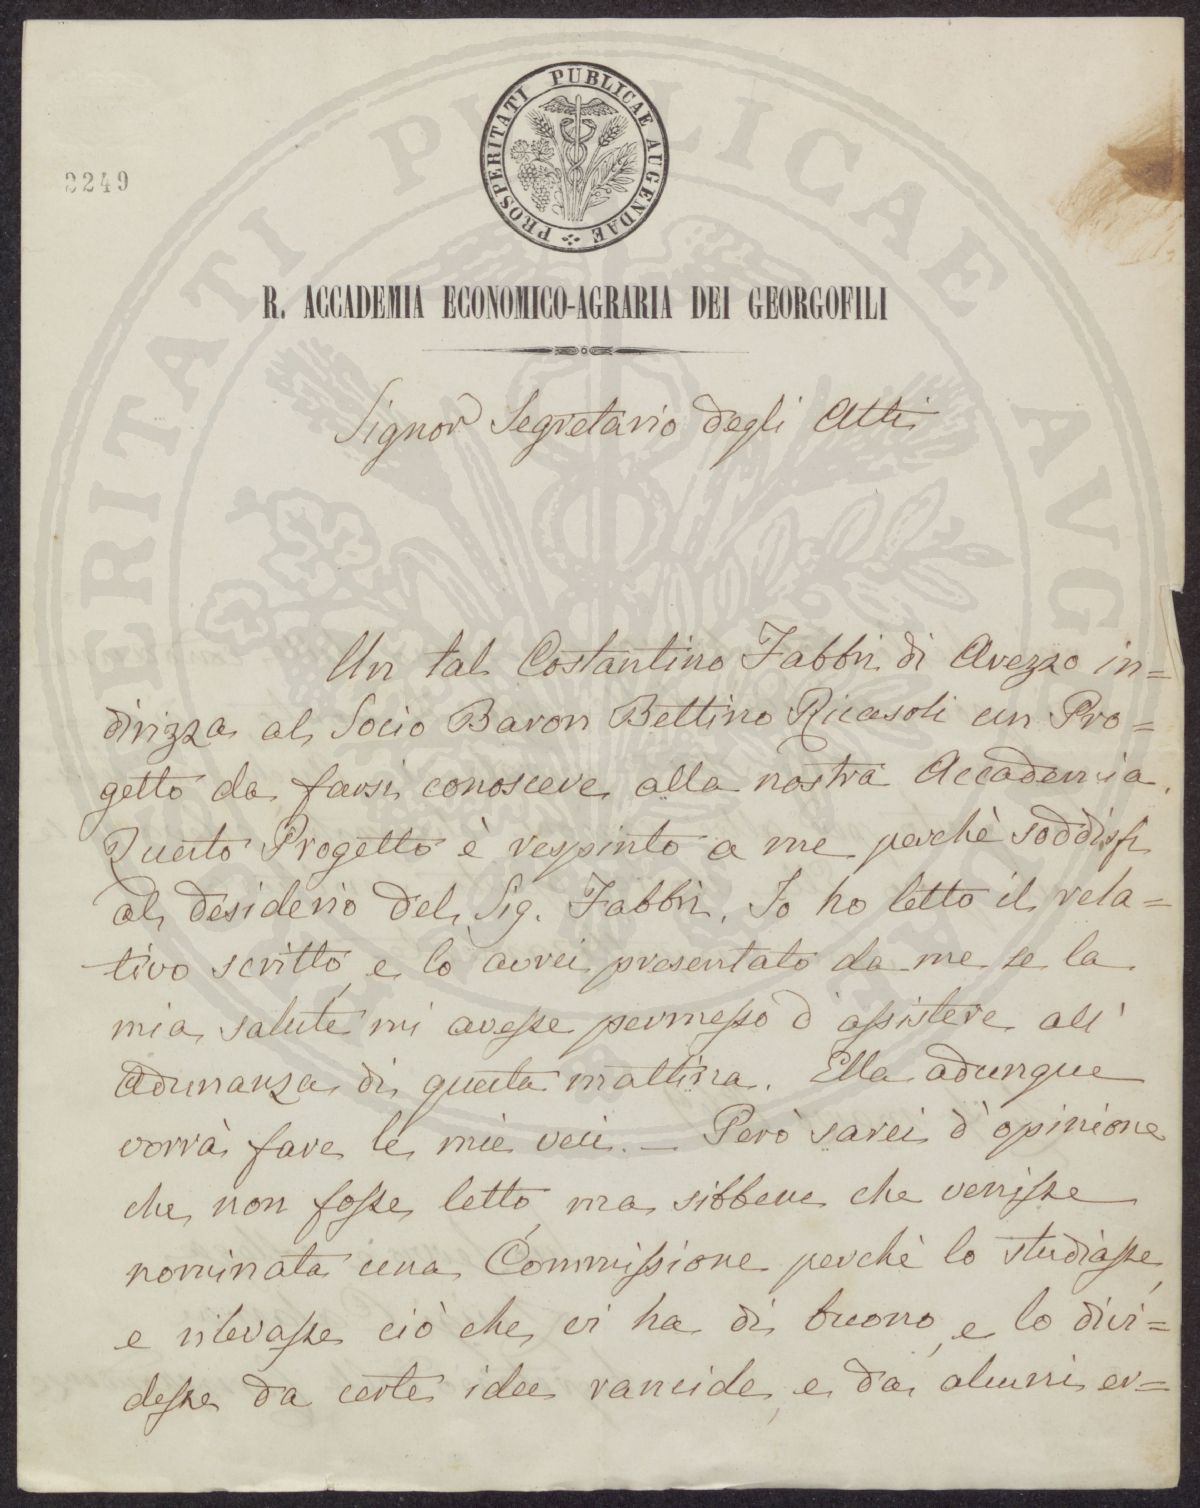 PROSPERITATI PUBLICAE AUGENDAE
2249
R. ACCADEMIA ECONOMICO-AGRARIA DEI GEORGOFILI
Signor Segretario degli Atti
Un tal Costantino Fabbri di Arezzo in=
dirizza al Socio Baron Bettino Ricasoli un Pro=
getto da farsi conoscere alla nostra Accademia.
Questo Progetto è respinto a me perchè soddisfi
al desiderio del Sig. Fabbri. Io ho letto il rela=
tivo scritto, e lo avrei presentato da me se la
mia salute mi avesse permesso d'assistere all'
Adunanza di questa mattina. Ella adunque
vorrà fare le mie veci. — Però sarei d'opinione
che non fosse letto, ma sibbene che venisse
nominata una Commissione perchè lo studiasse,
e rilevasse ciò che vi ha di buono, e lo divi=
desse da certe idee rancide, e da alcuni er=